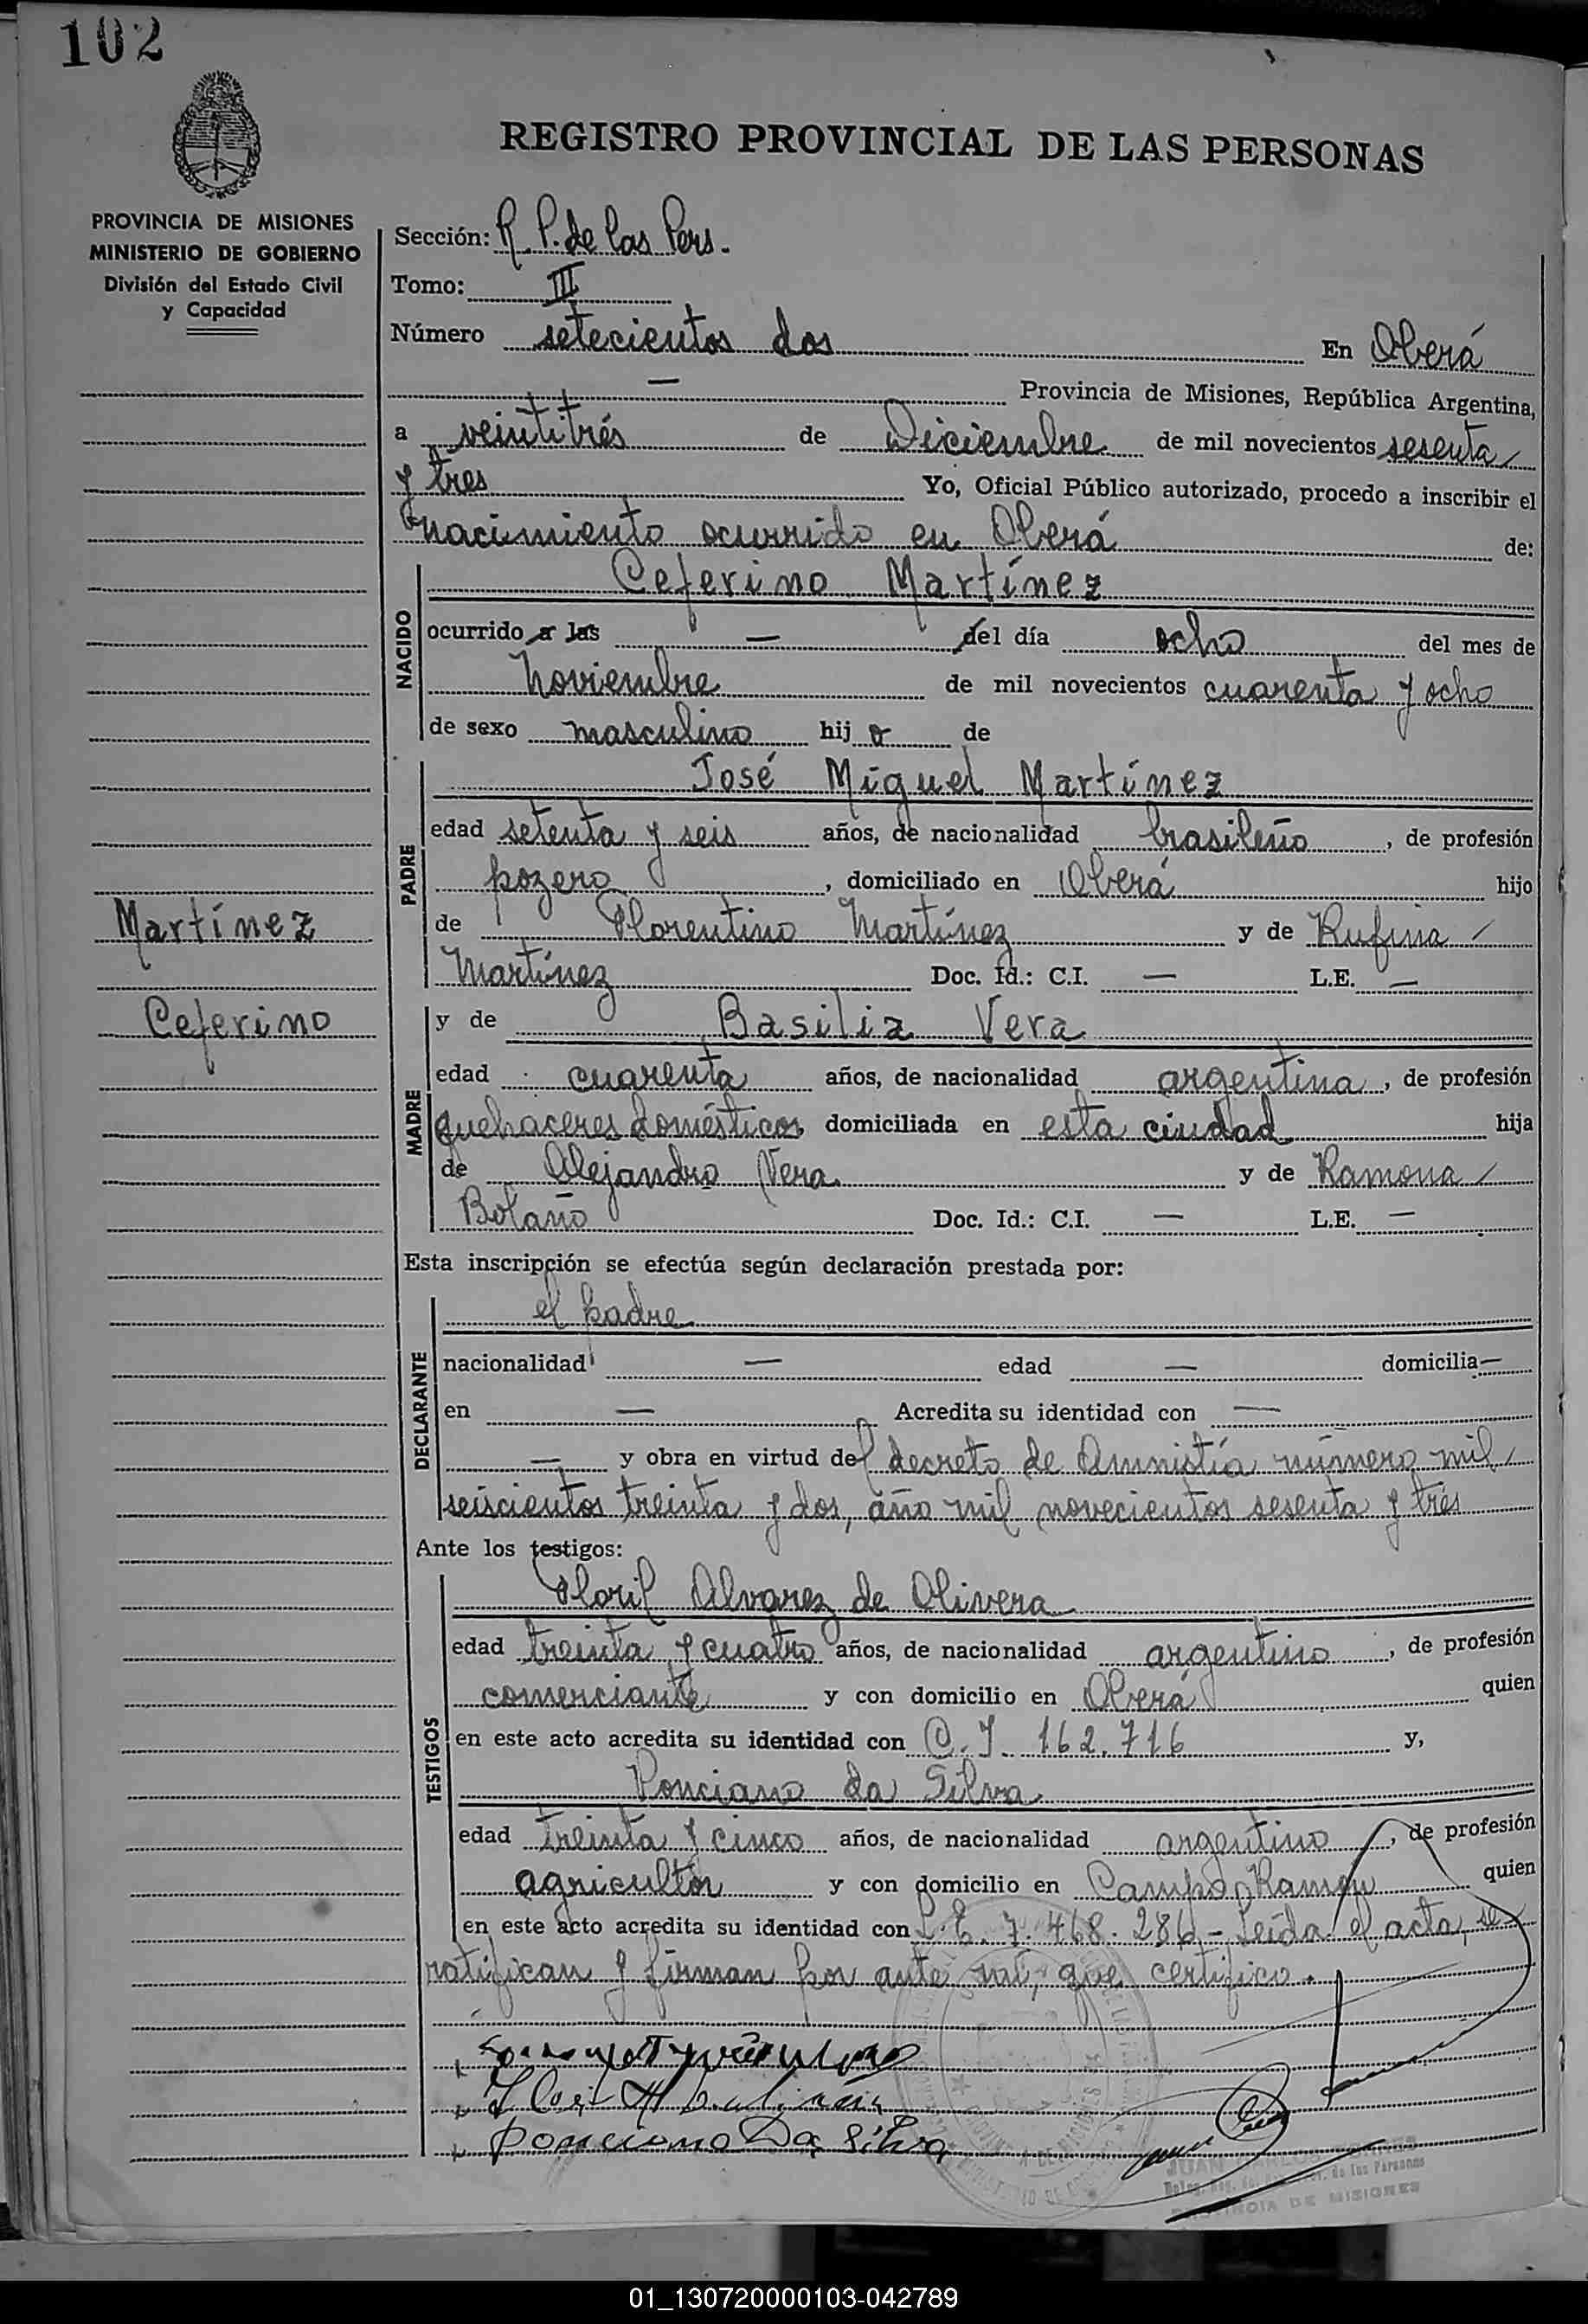 102
REGISTRO PROVINCIAL DE LAS PERSONAS
PROVINCIA DE MISIONES
MINISTERIO DE GOBIERNO
División del Estado Civil
y Capacidad
Sección: R. P. de las Pers.
Tomo: III
Número setecientos dos En Oberá
— Provincia de Misiones, República Argentina,
a veintitrés de Diciembre de mil novecientos sesenta
y tres Yo, Oficial Público autorizado, procedo a inscribir el
nacimiento ocurrido en Oberá de:
NACIDO
Ceferino Martínez
ocurrido a las — del día ocho del mes de
Noviembre de mil novecientos cuarenta y ocho
de sexo masculino hijo de
PADRE
José Miguel Martínez
edad setenta y seis años, de nacionalidad brasileño, de profesión
pozero, domiciliado en Oberá hijo
de Florentino Martínez y de Rufina
Martínez Doc. Id.: C.I. — L.E. —
Martínez
Ceferino
MADRE
y de Basilia Vera
edad cuarenta años, de nacionalidad argentina, de profesión
quehaceres domésticos domiciliada en esta ciudad hija
de Alejandro Vera y de Ramona
Bolaño Doc. Id.: C.I. — L.E. —
Esta inscripción se efectúa según declaración prestada por:
DECLARANTE
el padre
nacionalidad — edad — domicilia—
en — Acredita su identidad con —
— y obra en virtud del decreto de Amnistía número mil
seiscientos treinta y dos, año mil novecientos sesenta y tres
Ante los testigos:
TESTIGOS
Floril Alvarez de Olivera
edad treinta y cuatro años, de nacionalidad argentino, de profesión
comerciante y con domicilio en Oberá quien
en este acto acredita su identidad con C.I. 162.716 y,
Ponciano da Silva
edad treinta y cinco años, de nacionalidad argentino, de profesión
agricultor y con domicilio en Campo Ramón quien
en este acto acredita su identidad con L.E. 7.468.286.- Leída el acta, se
ratifican y firman por ante mí, que certifico.
Ponciano Da Silva
JUAN CARLOS
de las Personas
PROVINCIA DE MISIONES
01_130720000103-042789